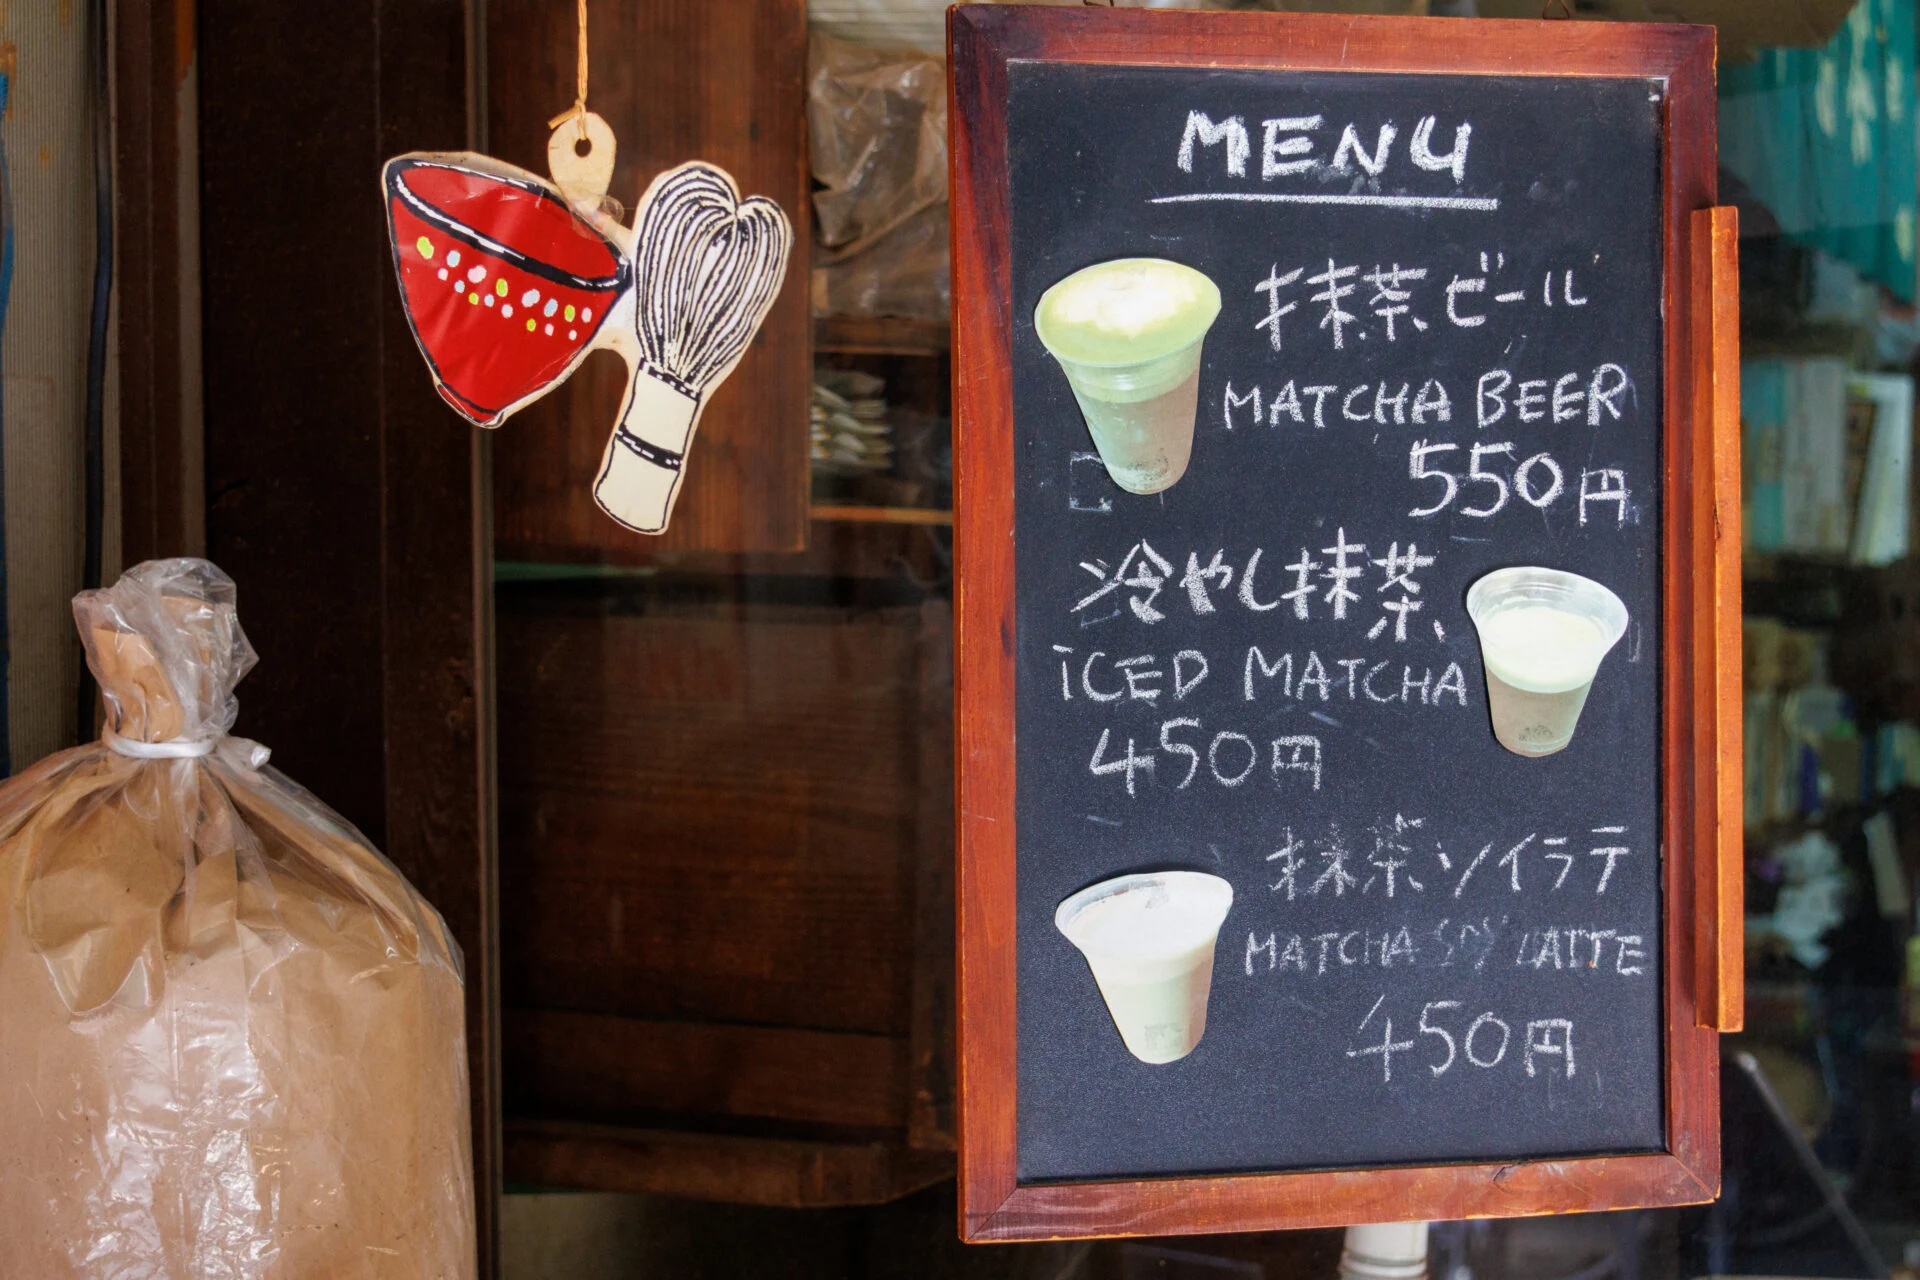 MENU
抹茶ビール
MATCHA BEER
550円
冷やし抹茶
ICED MATCHA
450円
抹茶ソイラテ
MATCHA SOY LATTE
450円